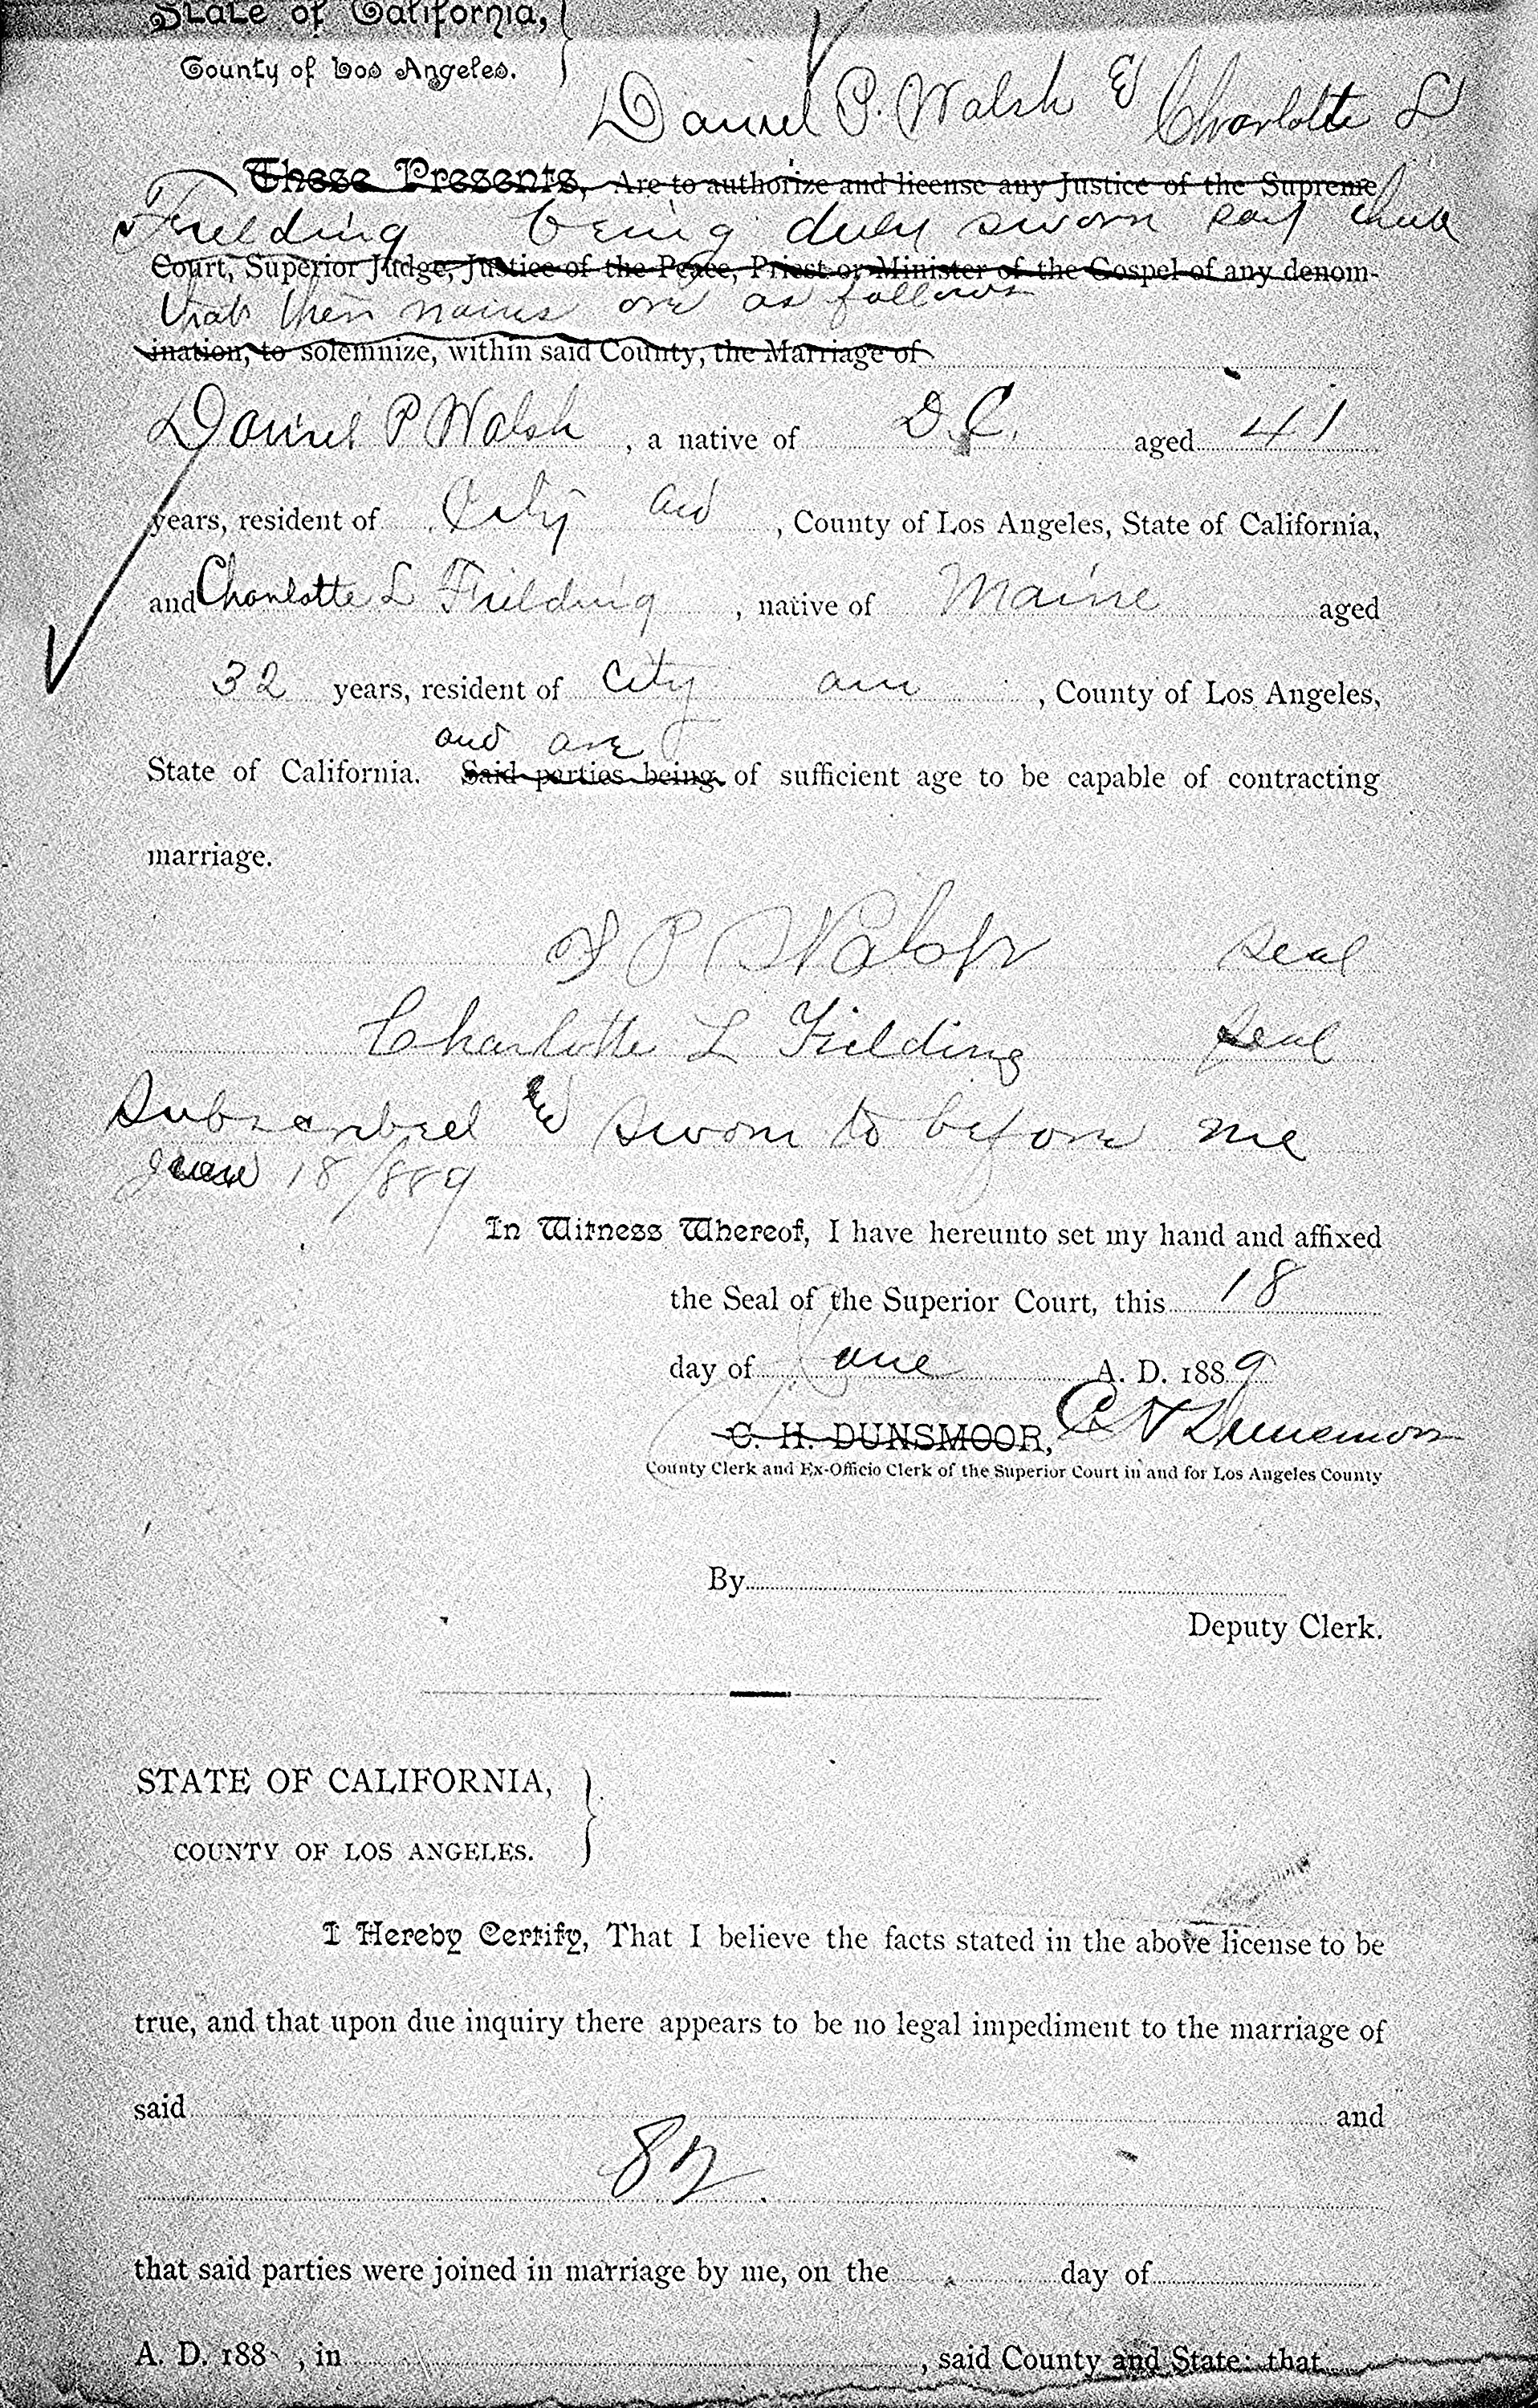 State of California,
County of Los Angeles.
Daniel P. Walsh & Charlotte L
These Presents, Are to authorize and license any Justice of the Supreme
Fielding being duly sworn say
Court, Superior Judge, Justice of the Peace, Priest or Minister of the Gospel of any denom-
that their names are as follows
ination, to solemnize, within said County, the Marriage of
Daniel P Walsh, a native of D.C. aged 41
years, resident of City and, County of Los Angeles, State of California,
and Charlotte L Fielding, native of Maine aged
32 years, resident of City, County of Los Angeles,
and are
State of California. Said parties being of sufficient age to be capable of contracting
marriage.
D P Walsh seal
Charlotte L Fielding seal
Subscribed and sworn to before me
June 18/889
In Witness Whereof, I have hereunto set my hand and affixed
the Seal of the Superior Court, this 18
day of June A. D. 1889
C. H. DUNSMOOR, C H Dunsmoor
County Clerk and Ex-Officio Clerk of the Superior Court in and for Los Angeles County
By
Deputy Clerk.
STATE OF CALIFORNIA,
COUNTY OF LOS ANGELES.
I Hereby Certify, That I believe the facts stated in the above license to be
true, and that upon due inquiry there appears to be no legal impediment to the marriage of
said and
82
that said parties were joined in marriage by me, on the day of
A. D. 188 , in , said County and State; that